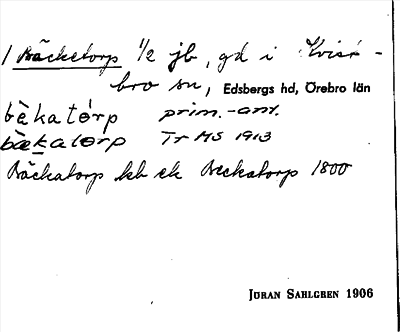 1 Bäcketorp 1/2 jb, gd i Kvist-
bro sn, Edsbergs hd, Örebro län
bèkatórp prim.-ant.
bækatɵrp Tr MS 1913
Bäckatorp kb ek Beckatorp 1800
JÖRAN SAHLGREN 1906